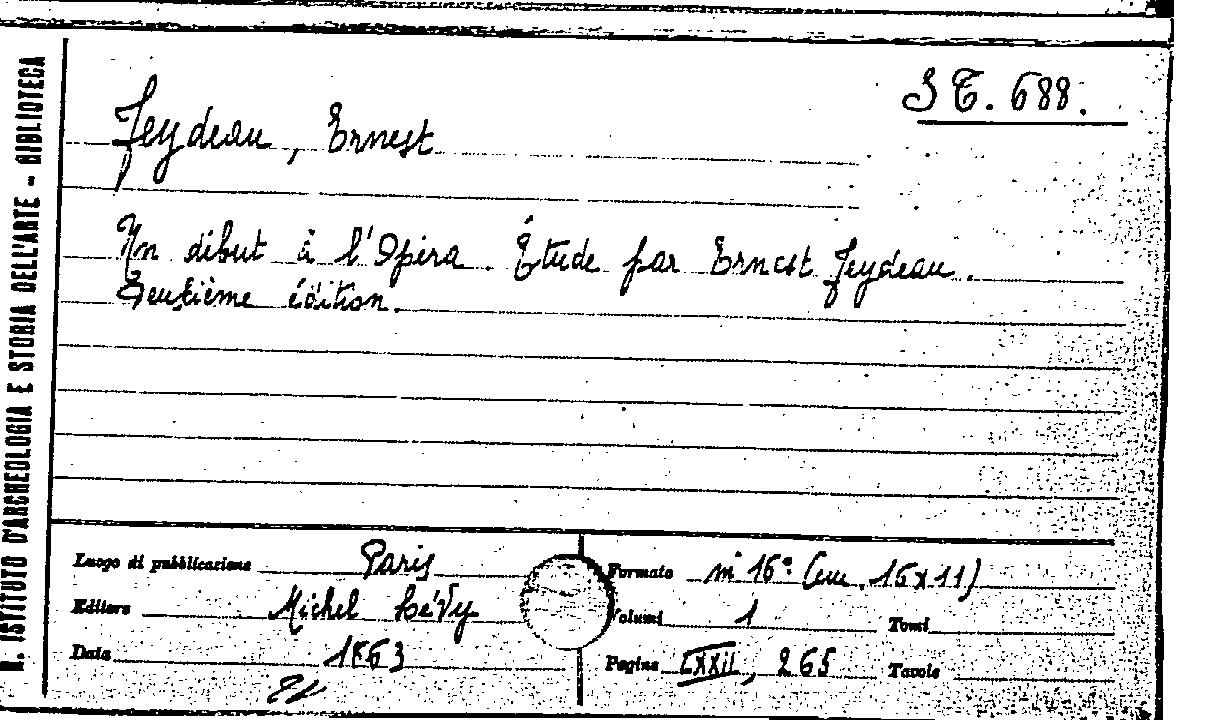 R. ISTITUTO D'ARCHEOLOGIA E STORIA DELL'ARTE - BIBLIOTECA
S T. 688.
Feydeau, Ernest
Un début à l'Opéra. Étude par Ernest Feydeau.
Deuxième édition.
Luogo di pubblicazione Paris
Editore Michel Lévy
Data 1863
Formato in 16° (cm. 16x11)
Volumi 1 Tomi
Pagine LXXII, 265 Tavole